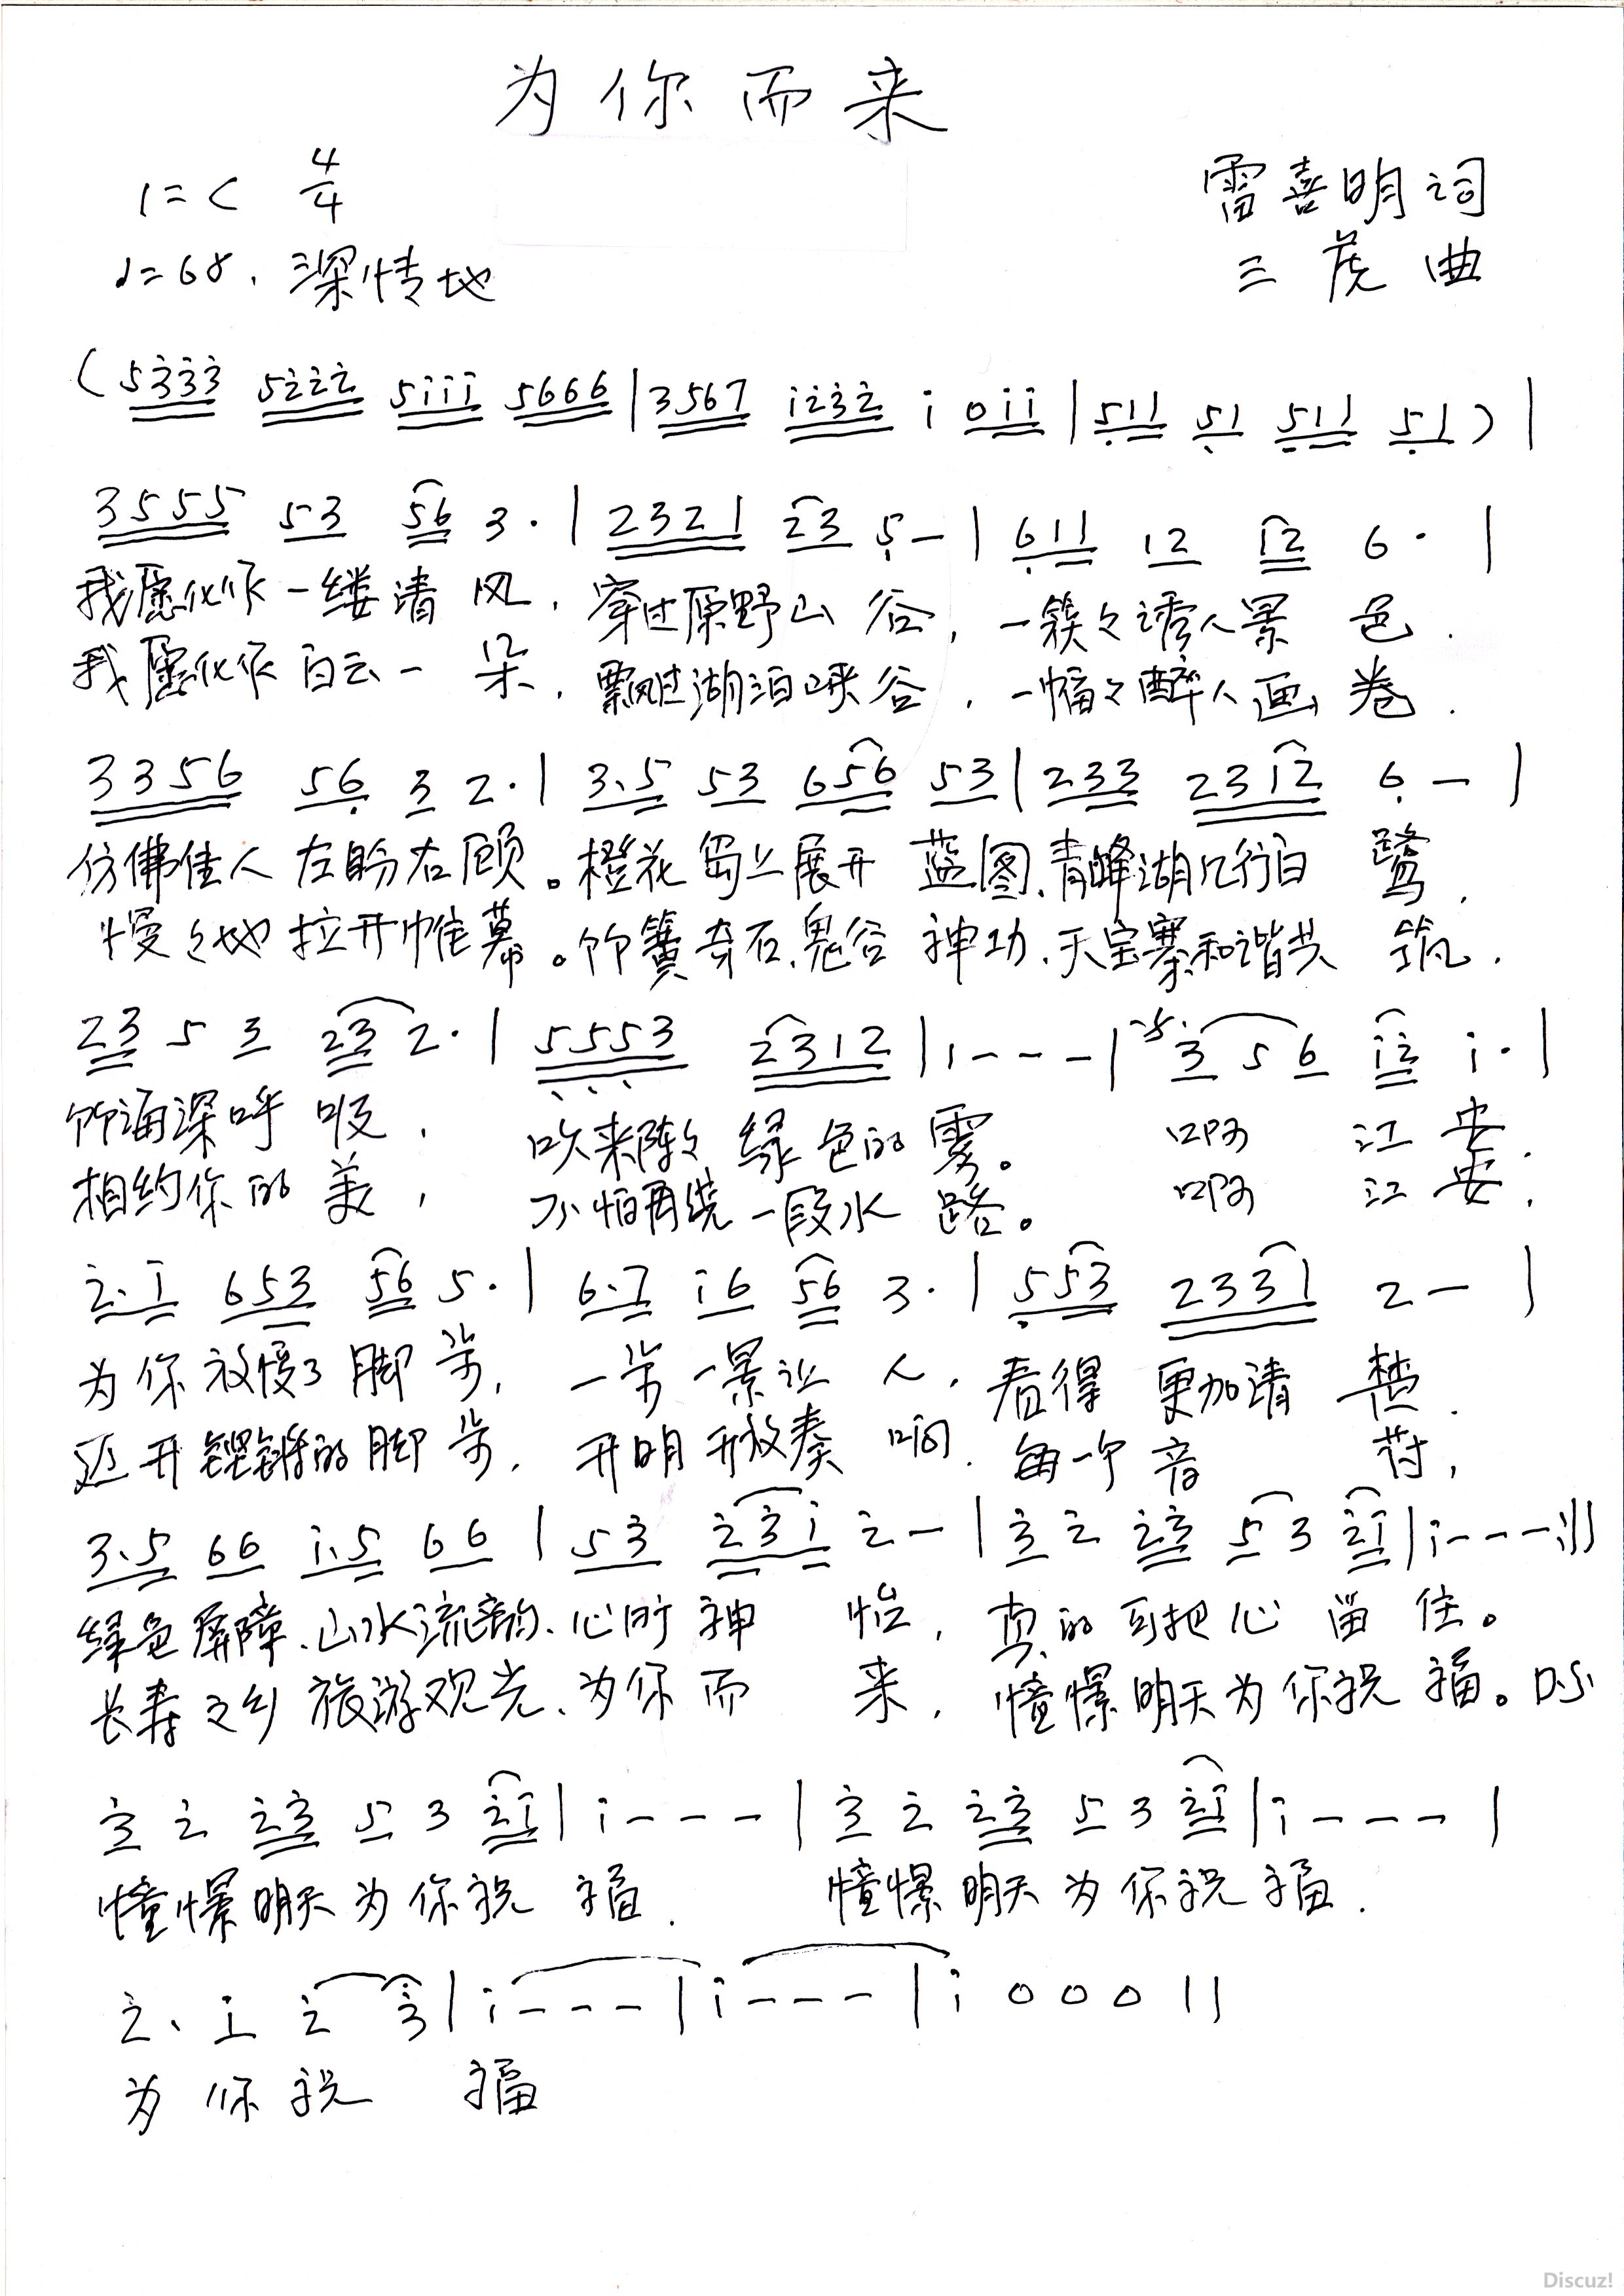 为你而来
1=C 4/4
雷喜明词
♩=68. 深情地
三虎曲
(5333 5222 5111 5666|3567 1232 1 011|511 51 511 51)|
3555 53 56 3·|2321 23 5-|611 12 12 6·|
我愿化作一缕清风,穿过原野山谷,一簇々诱人景色.
我愿化作白云一朵,飘过湖泊峡谷,一幅々醉人画卷.
3356 56 3 2·|3.5 53 656 53|233 2312 6-|
仿佛佳人左盼右顾。橙花蜀上展开蓝图、青峰湖几行白鹭,
慢々地拉开帷幕。竹簧奇石、鬼谷神功、天宝寨和谐共筑.
23 5 3 23 2·|5553 2312|1---|3 5 6 12 1·|
竹海深呼吸, 吹来阵々绿色的雾。 啊 江安.
相约你的美, 不怕再绕一段水路。 啊 江安,
2.1 653 56 5·|6.7 16 56 3·|553 2331 2-|
为你放慢了脚步, 一步一景让人,看得更加清楚.
迈开铿锵的脚步, 开明开放奏响.每一个音符,
3.5 66 1.5 66|53 231 2-|3 2 23 5 3 21|1---:||
绿色屏障、山水流韵、心旷神怡, 真的可把心留住。
长寿之乡旅游观光、为你而来, 憧憬明天为你祝福。D.S.
3 2 23 5 3 21|1---|3 2 23 5 3 21|1---|
憧憬明天为你祝福. 憧憬明天为你祝福.
2. 1 2 3|1---|1---|1 0 0 0||
为你祝福
Discuz!